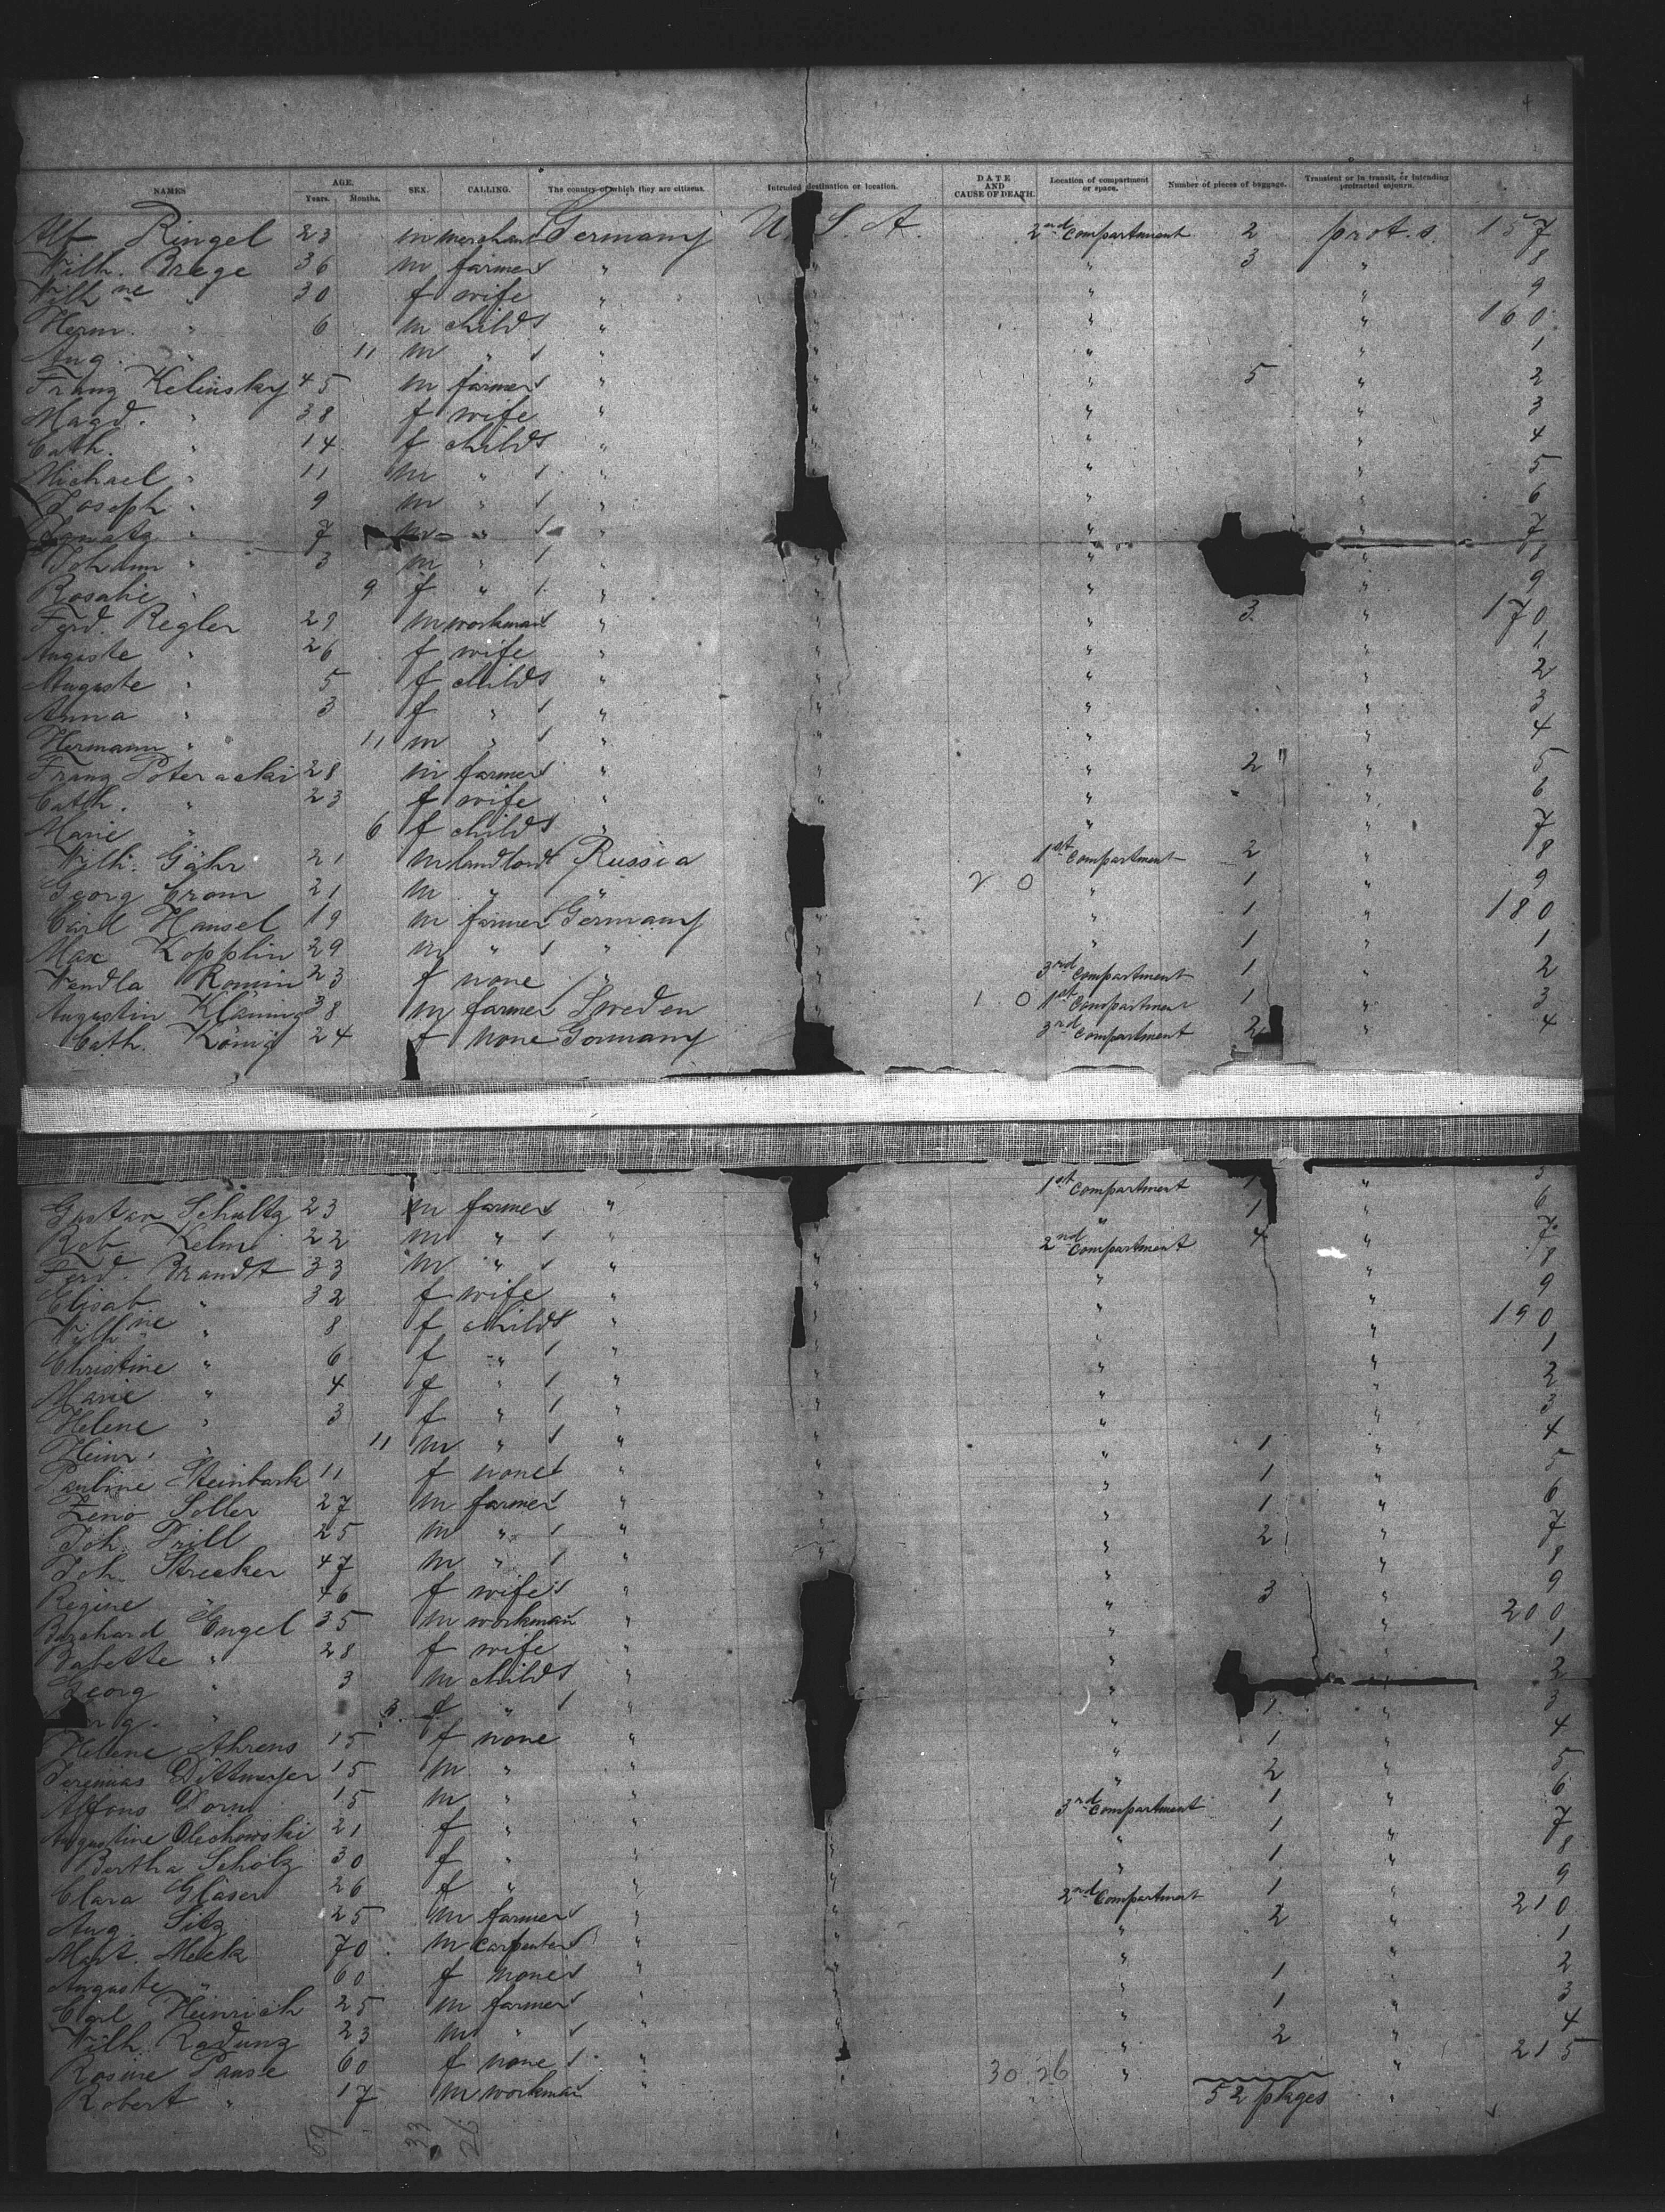 NAMES AGE. Years. Months. SEX. CALLING. The country of which they are citizens. Intended destination or location. DATE AND CAUSE OF DEATH. Location of compartment or space. Number of pieces of baggage. Transient or in transit, or intending protracted sojourn.
Alb Ringel 23 m merchant Germany U. S. A. 2nd compartment 2 prot. s. 157
Wilh. Brege 36 m farmer " " " 3 " 8
Wilhne " 30 f wife " " " " 9
Herm. " 6 m child " " " " 160
Aug. " 11 m " " " " " 1
Franz Kelinsky 45 m farmer " " " 5 " 2
Magd. " 38 f wife " " " " 3
Cath. " 14 f child " " " " 4
Michael " 11 m " " " " " 5
Joseph " 9 m " " " " " 6
Ignatz " 7 m " " " " 7
Johann " 3 m " " " " " 8
Rosalie " 9 f " " " " " 9
Ferd. Regler 29 m workman " " " 3 " 170
Auguste " 26 f wife " " " " 1
Auguste " 5 f child " " " " 2
Anna " 3 f " " " " " 3
Hermann " 11 m " " " " " 4
Franz Poteracki 28 m farmer " " " 2 " 5
Cath. " 23 f wife " " " 6
Marie " 6 f child " " " 7
Wilh. Gähr 21 m landlord Russia 1st compartment 2 " 8
Georg Crom 21 m " " 2 0 " 1 " 9
Carl Hansel 19 m farmer Germany " " 1 " 180
Max Kopplin 29 m " " " " 1 " 1
Wandla Romin 23 f none " " 3rd compartment 1 " 2
Augustin Klaming 38 m farmer Sweden " 1 0 1st compartment 1 " 3
Cath. König 24 f none Germany 3rd compartment 2 " 4
1st compartment 1 " 5
Gustav Schultz 23 m farmer " " 1 " 6
Rob. Kelm 22 m " " 2nd compartment 4 " 7
Ferd. Brandt 33 m " " " " " 8
Elisab. " 32 f wife " " " 9
Wilhne " 8 f child " " " 190
Christine " 6 f " " " " 1
Marie " 4 f " " " " " 2
Helene " 3 f " " " " " 3
Heinr. " 11 m " " " " 1 " 4
Pauline Steinbark 11 f none " " " 1 " 5
Zeno Soller 27 m farmer " " " 1 " 6
Joh. Prill 25 m " " " 2 " 7
Joh. Strecker 47 m " " " " " 8
Regine " 46 f wife " " 3 " 9
Burchard Engel 35 m workman " " " 200
Babette " 28 f wife " " 1
Georg " 3 m child " " 2
" 3 f " " " 1 " 3
Helene Ahrens 15 f none " " 1 " 4
Jeremias Dittmayer 15 m " " " 2 " 5
Alfons Dorn 15 m " " 3rd compartment 1 " 6
Augustine Olechowski 21 f " " " " 1 " 7
Bertha Scholz 30 f " " " " 1 " 8
Clara Gläser 26 f " " " 2nd compartment 1 " 9
Aug. Sitz 25 m farmer " " " 2 " 210
Mart. Meek 70 m carpenter " " " " 1
Auguste " 60 f none " " " 1 " 2
Carl Heinrich 25 m farmer " " " 1 " 3
Wilh. Radunz 23 m " " " 2 " 4
Rosine Pause 60 f none " 30 26 " " 215
Robert " 17 m workman " 52 pkges "
59 33 26